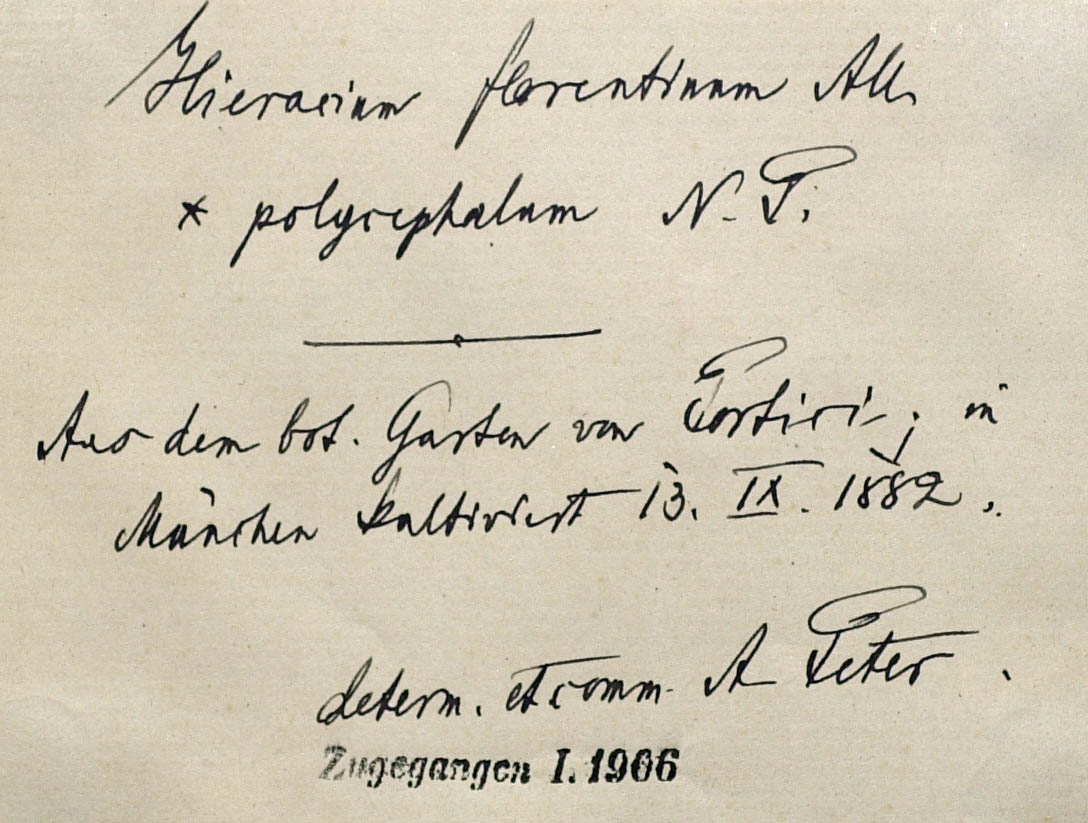 Hieracium florentinum All.
* polycephalum N. P.
Aus dem bot. Garten von Portici; in
München kultiviert 13. IX. 1882.
determ. et comm. A Peter.
Zugegangen I. 1906